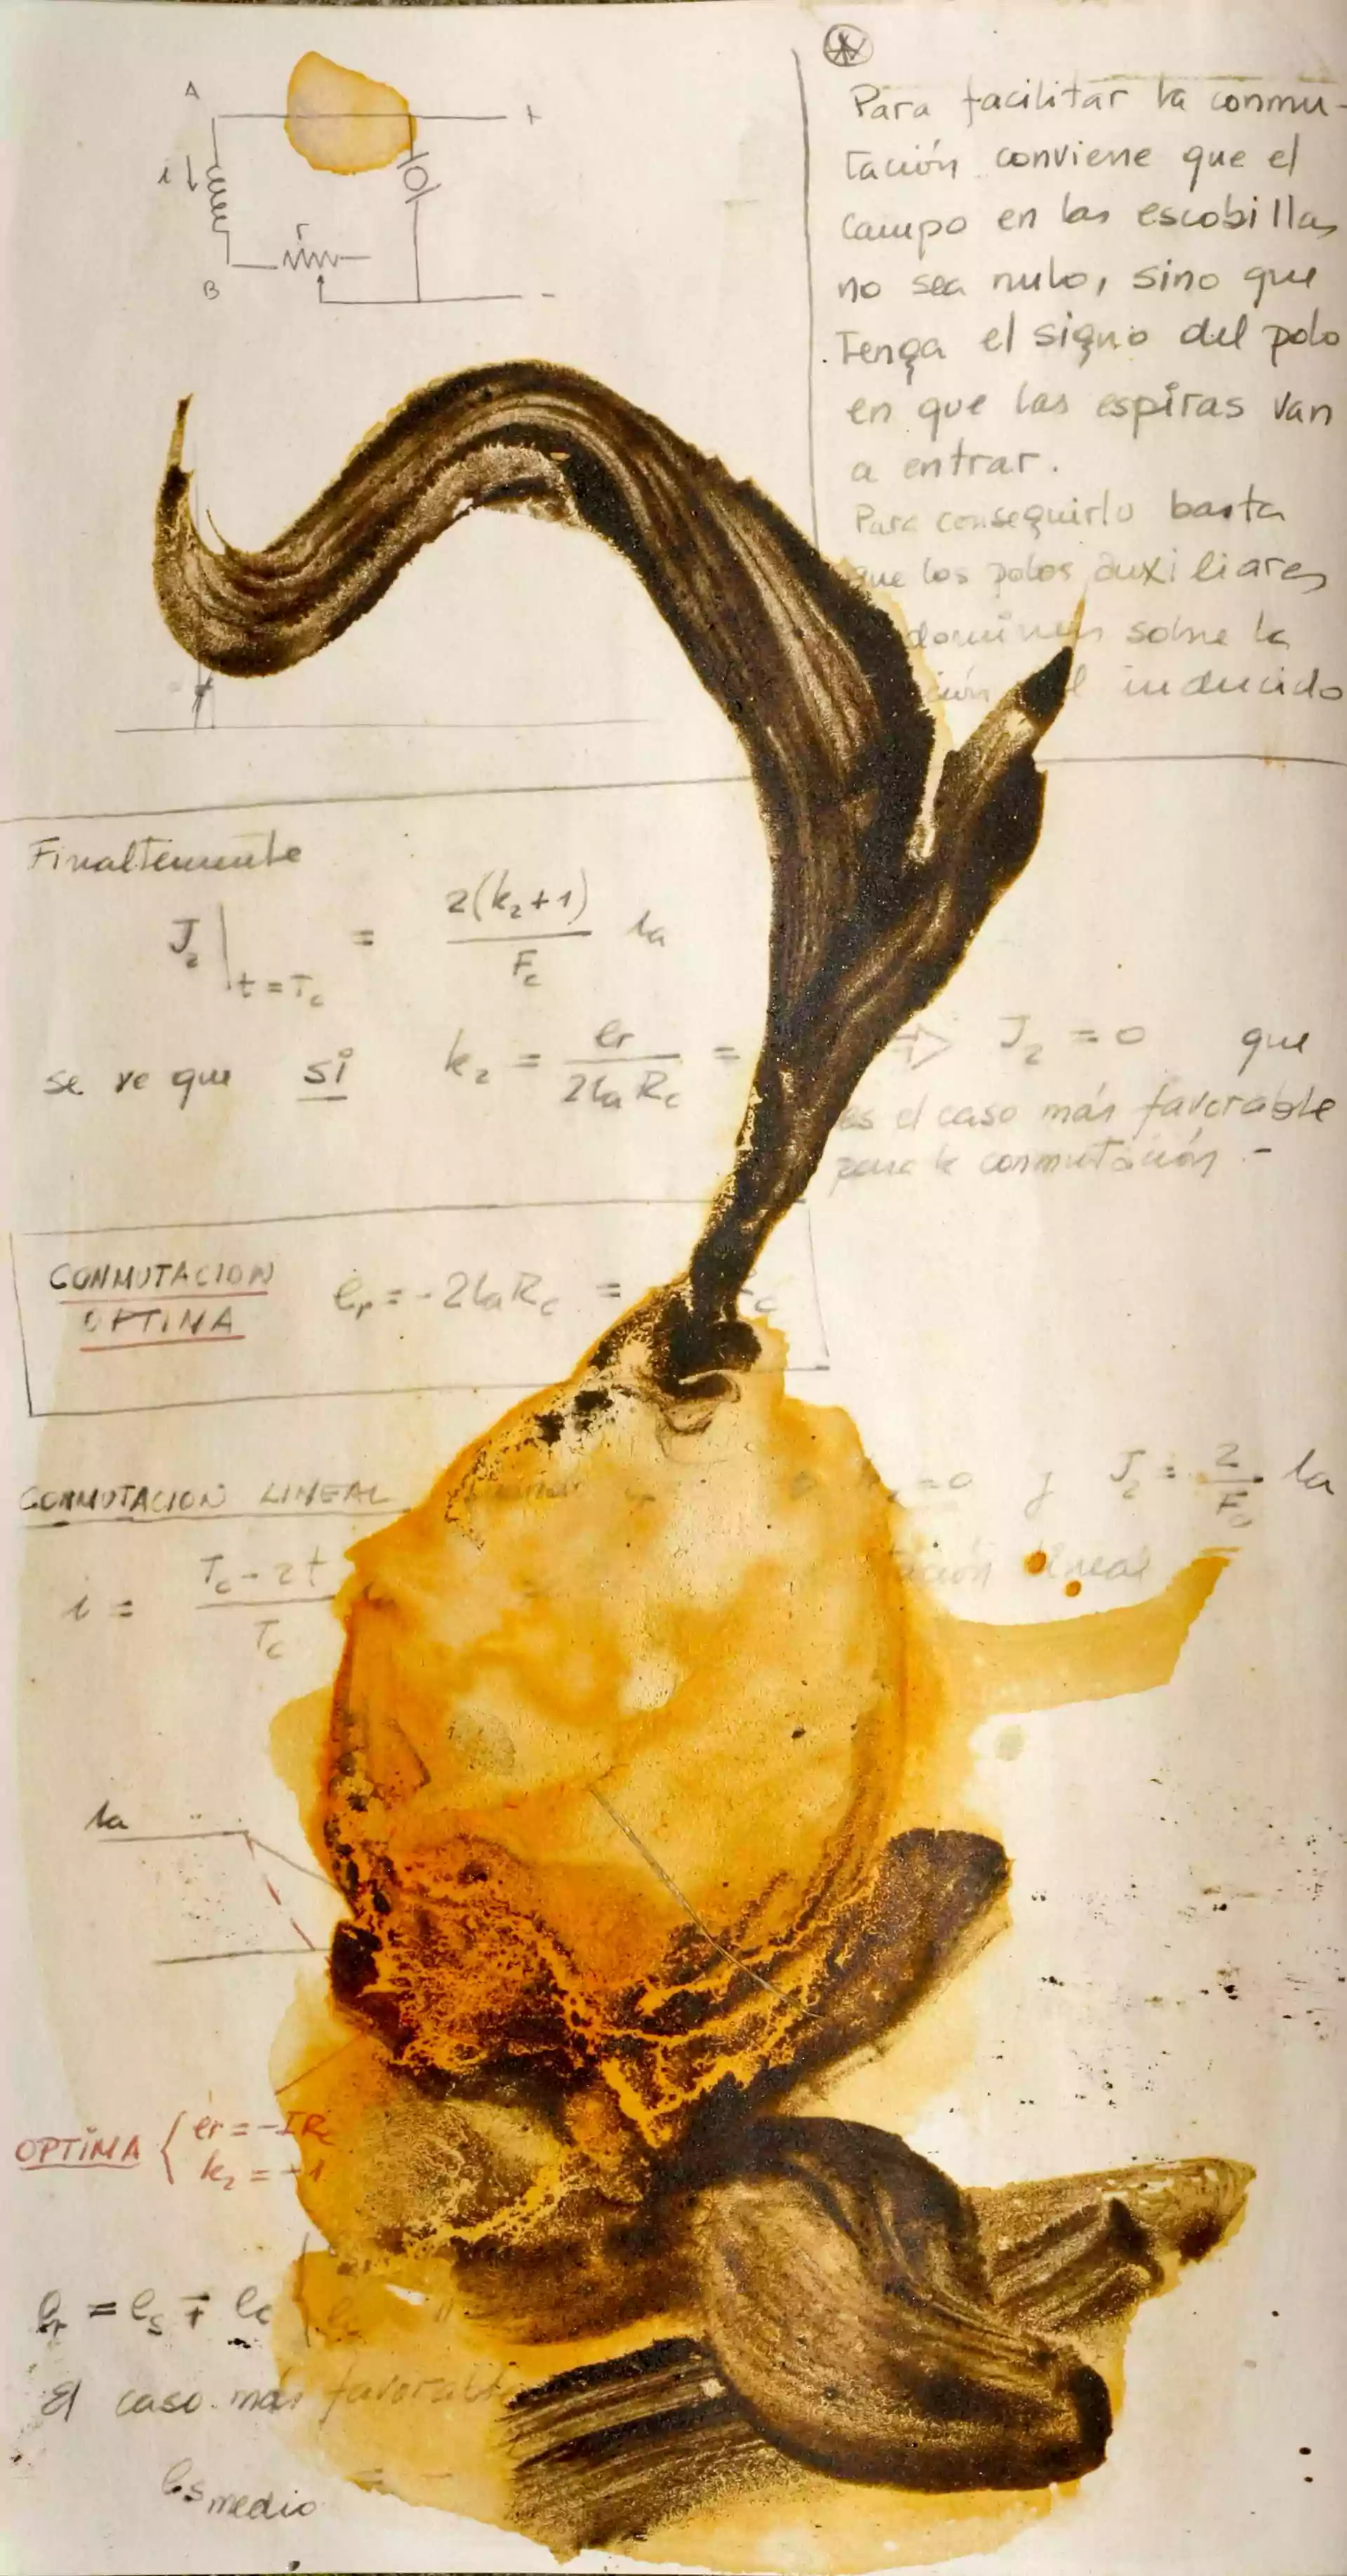 A
+
i
r
B
-
Para facilitar la conmu-
tación conviene que el
campo en las escobillas
no sea nulo, sino que
tenga el signo del polo
en que las espiras van
a entrar.
Para conseguirlo basta
que los polos auxiliares
dominen sobre la
inducido
Finaltemente
J₂|t=Tc = 2(k₂+1)/Fc ia
se ve que si k₂ = er/2ia Rc = ⇒ J₂ = 0 que
es el caso más favorable
para la conmutación -
CONMUTACION er = -2ia Rc =
OPTIMA
CONMUTACION LINEAL =0 y J₂ = 2/Fc ia
lineal
i = Tc - 2t/Tc
ia
OPTIMA { er = -IRc
k₂ = -1
er = es ∓ ec
El caso más favorable
es medio